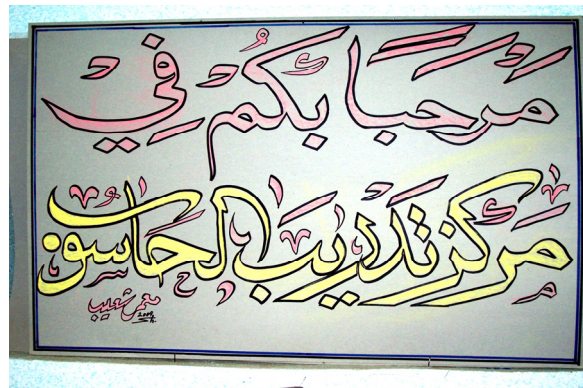 مرحبا بكم في
مركز تدريب الحاسوب
معمر شعيب
2008